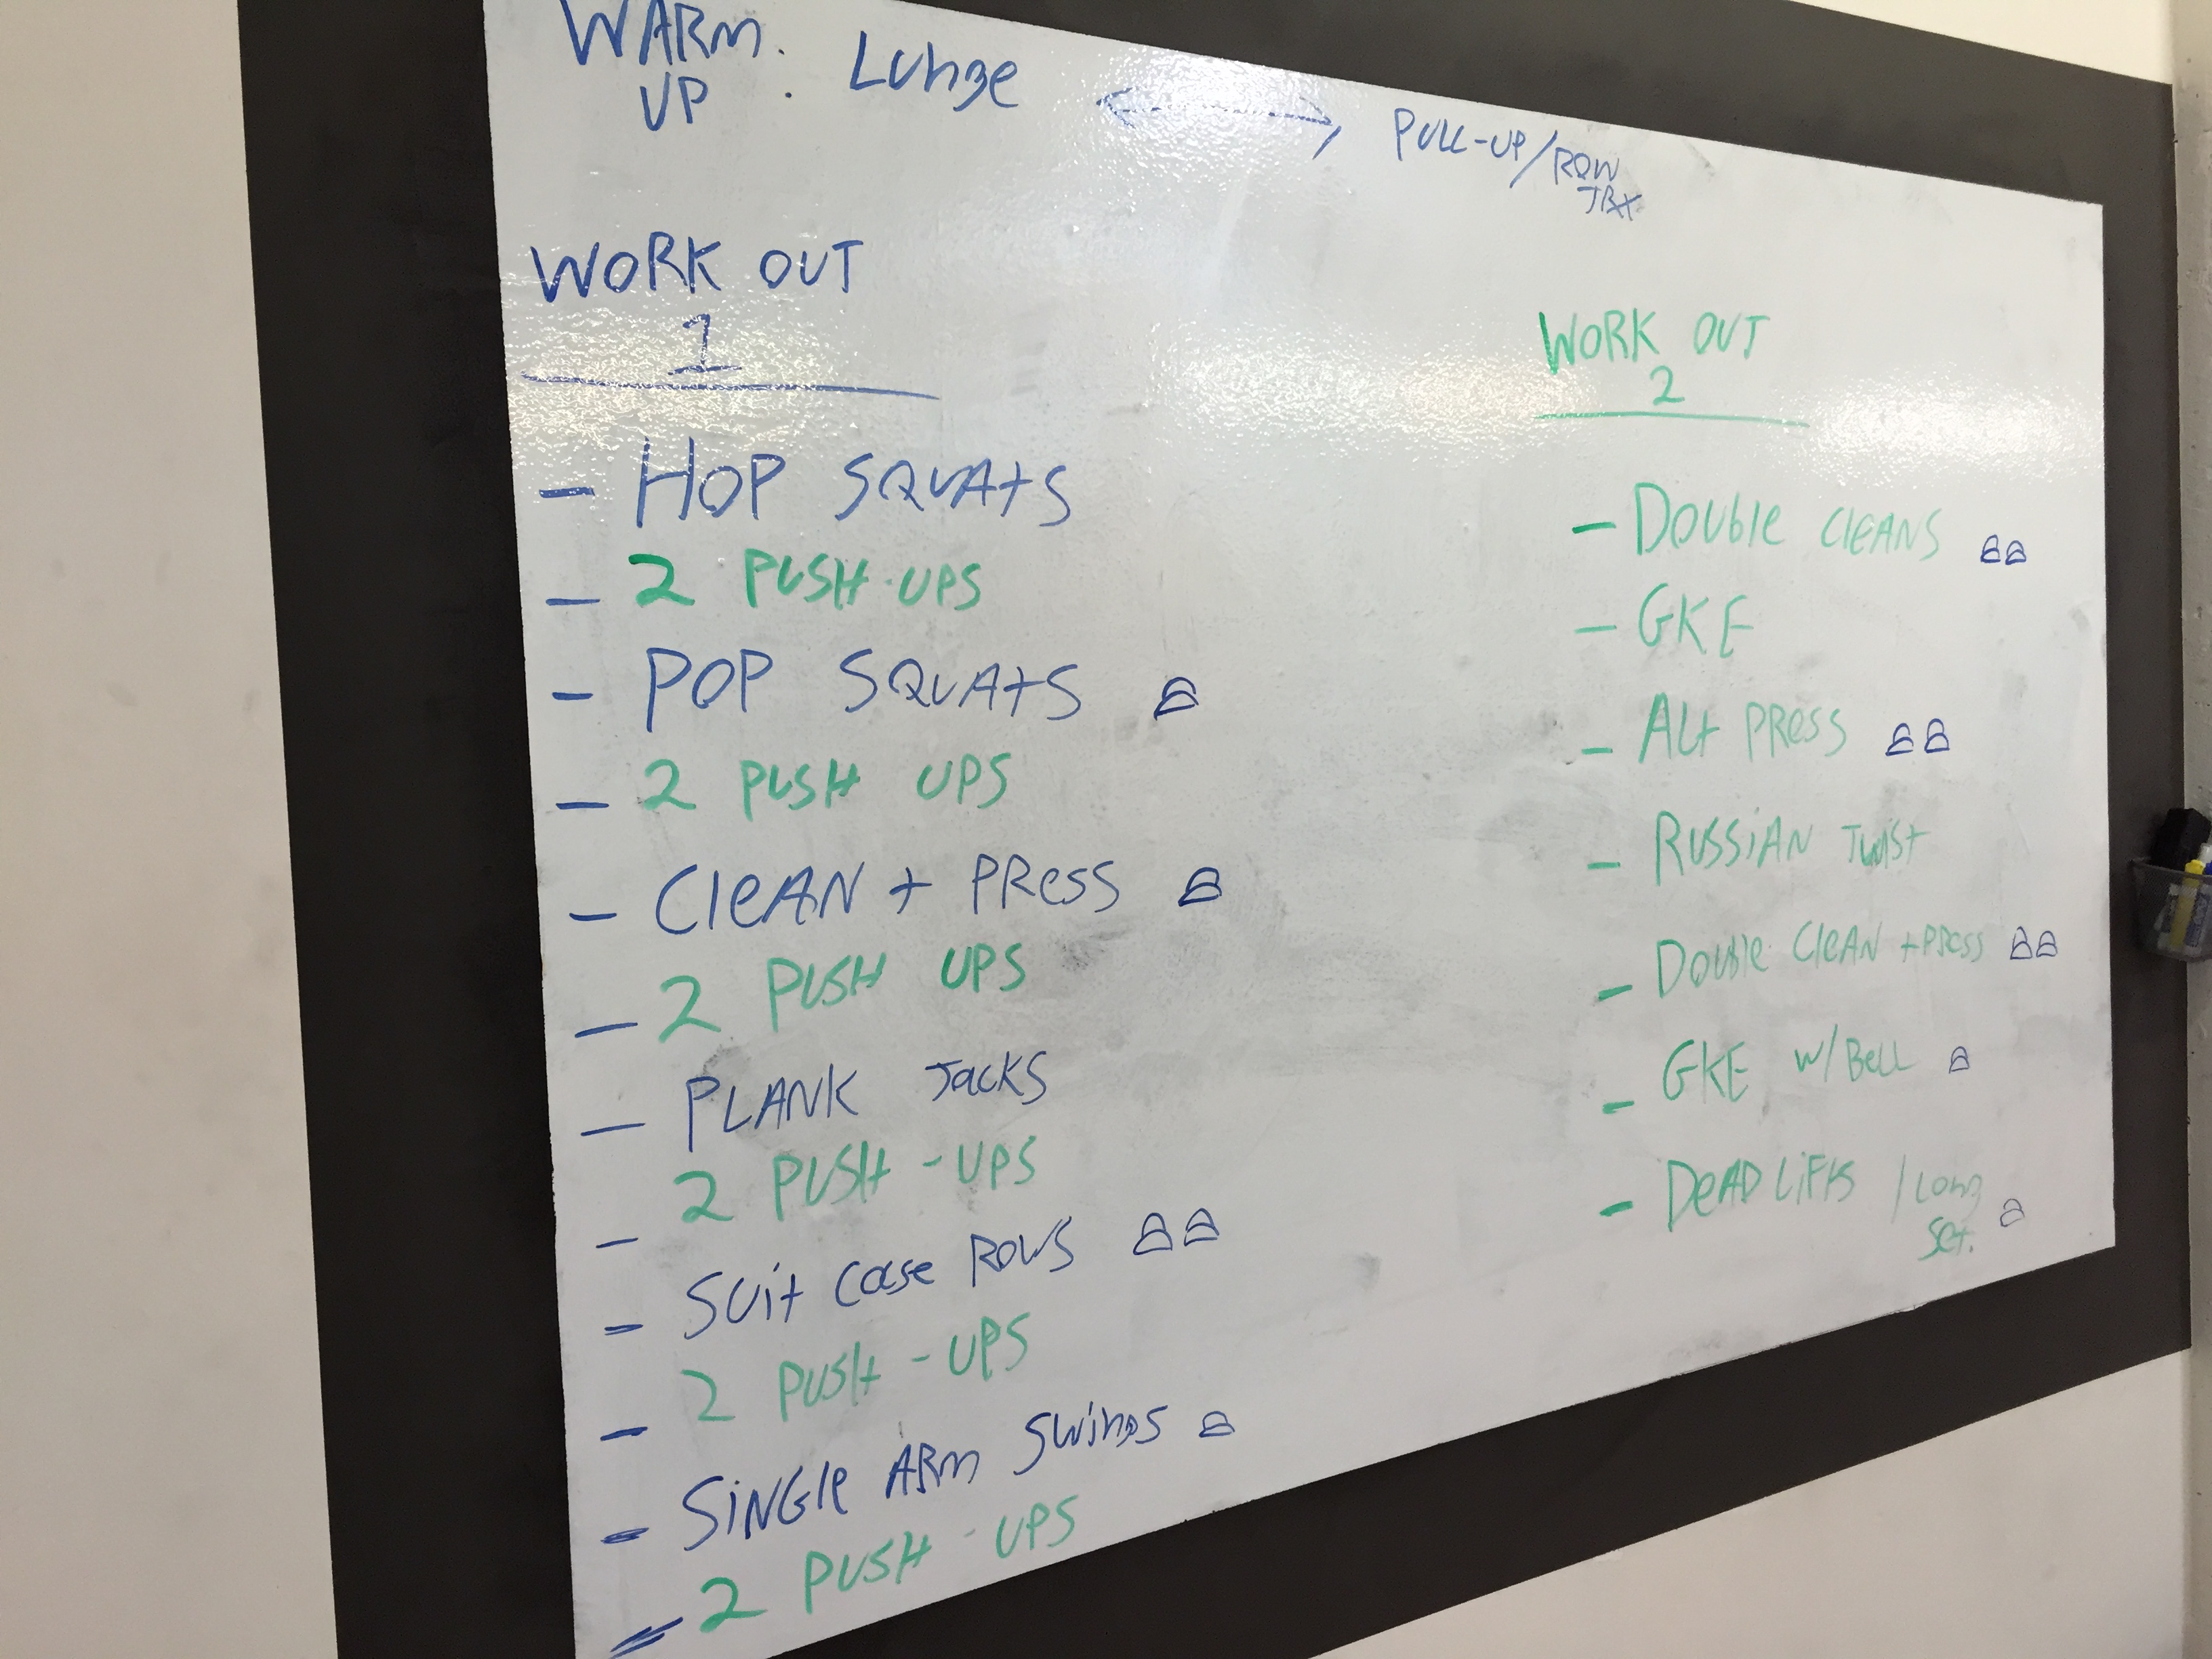 WARM UP : Lunge ⟷ PULL-UP/ROW TRX
WORK OUT
1
- HOP SQUAtS
- 2 PUSH-UPS
- POP SQUAtS
- 2 PUSH UPS
- CleAN + PRess
- 2 PUSH UPS
- PLANK JacKS
- 2 PUSH-UPS
- SUit case ROWS
- 2 PUSH-UPS
- SiNGle ARm Swings
- 2 PUSH-UPS
WORK OUT
2
- DOUble ClEANS
- GKE
- Alt PRess
- RUSSiAN Twist
- DOUble CleAN + PRess
- GKE w/ BeLL
- DeADLiFtS / Long
Set.